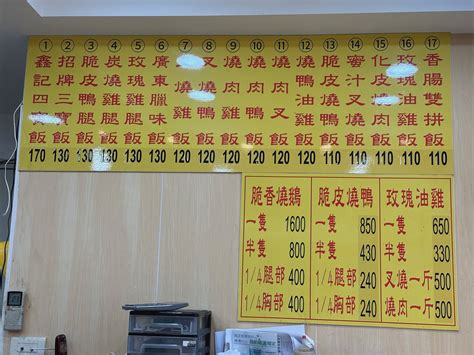 ① 鑫記四寶飯 170
② 招牌三寶飯 130
③ 脆皮鴨腿飯 130
④ 炭燒雞腿飯 130
⑤ 玫瑰雞腿飯 130
⑥ 廣東臘味飯 130
⑦ 飯 120
⑧ 叉 飯 120
⑨ 燒肉 飯 120
⑩ 燒肉 飯 120
⑪ 燒 叉 飯 120
⑫ 燒鴨油雞飯 120
⑬ 脆皮燒鴨飯 110
⑭ 蜜汁叉燒飯 110
⑮ 化皮燒肉飯 110
⑯ 玫瑰油雞飯 110
⑰ 香腸雙拼飯 110
脆香燒鵝
一隻 1600
半隻 800
1/4腿部 400
1/4胸部 400
脆皮燒鴨
一隻 850
半隻 430
1/4腿部 240
1/4胸部 240
玫瑰油雞
一隻 650
半隻 330
叉燒一斤 500
燒肉一斤 500